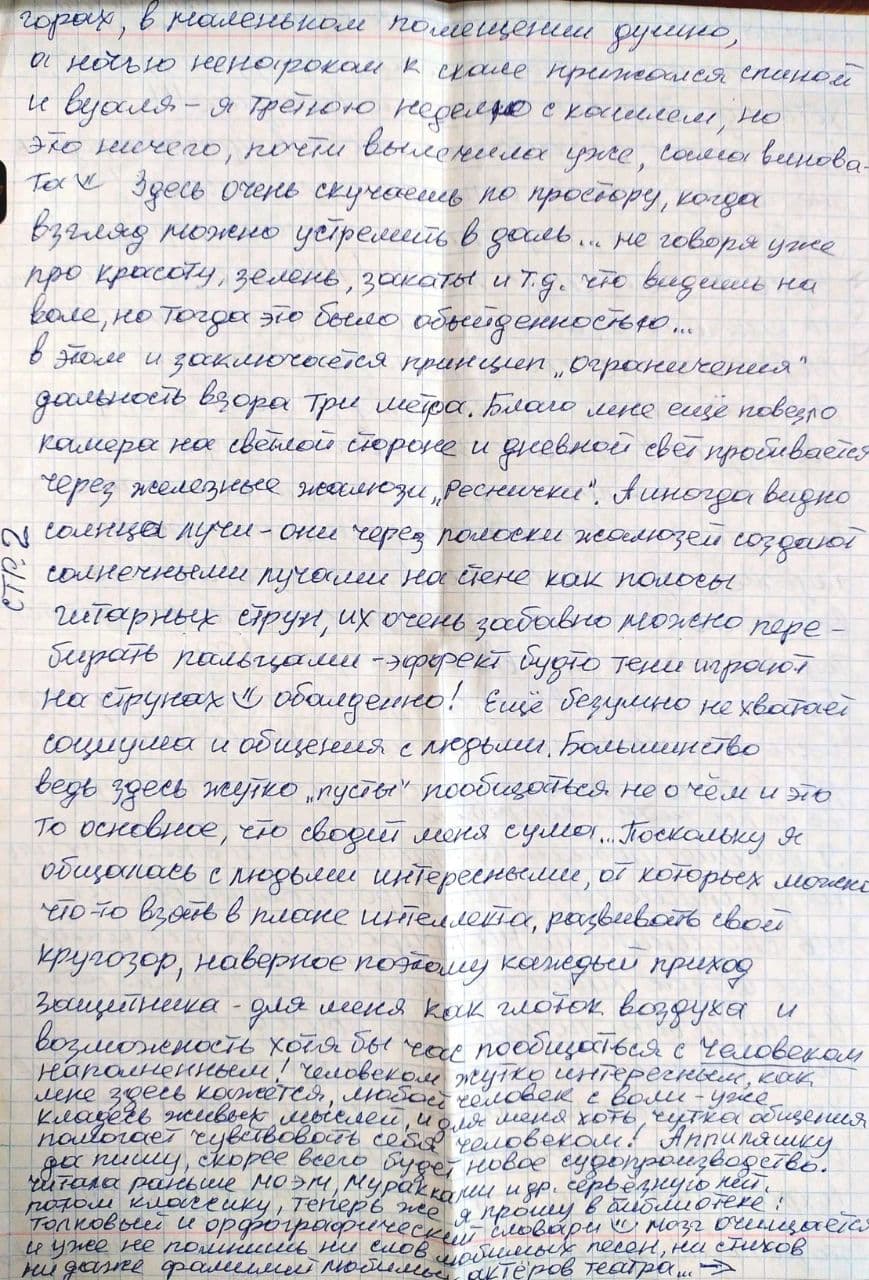 горах, в маленьком помещении душно,
а ночью ненароком к скале прижался спиной
и вуаля - я третью неделю с кашлем, но
это ничего, почти вылечила уже, сама винова-
та Здесь очень скучаешь по простору, когда
взгляд можно устремить в даль... не говоря уже
про красоту, зелень, закаты и т.д. что видишь на
воле, но тогда это было обыйденностью...
в этом и заключается принцип „ограничения"
дальность взора три метра. Благо мне ещё повезло
камера на светлой стороне и дневной свет пробивается
через железные жалюзи „Реснички". А иногда видно
солнца лучи - они через полоски жалюзей создают
солнечными лучами на стене как полосы
гитарных струн, их очень забавно можно пере-
бирать пальцами - эффект будто тени играют
на струнах обалденно! Ещё безумно не хватает
социума и общения с людьми. Большинство
ведь здесь жутко „пусты" пообщаться не о чём и это
то основное, что сводит меня с ума... Поскольку я
общалась с людьми интересными, от которых можно
что-то взять в плане интеллекта, развивать свой
кругозор, наверное поэтому каждый приход
защитника - для меня как глоток воздуха и
возможность хотя бы час пообщаться с человеком
наполненным! человеком жутко интересным, как
мне здесь кажется, любой человек с воли - уже
кладезь живых мыслей, и для меня хоть чутка общения
помогает чувствовать себя человеком! Аппиляшку
да пишу, скорее всего будет новое судопроизводство.
Читала раньше Моэм, Мураками и др. серьёзную
потом классику, теперь же я прошу в библиотеке:
толковый и орфографический словари мозг очищается
и уже не помнишь ни слов любимых песен, ни стихов
ни даже фамилий любимых актёров театра... →
стр. 2